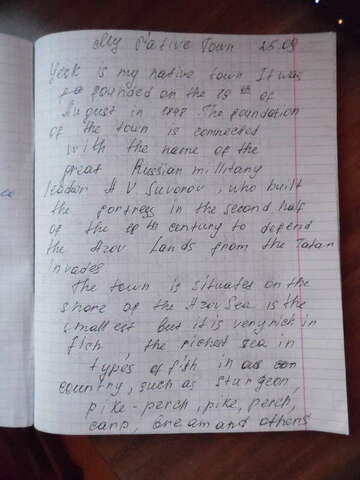 My Native Town 25.09
Yeisk is my native town It was
founded on the 19 th of
August in 1848. The foundation
of the town is connected
with the name of the
great Russian military
leader A V Suvorov, who built
the fortress in the second half
of the 18th century to defend
the Azov Lands from the Tatan
invades
The town is situates on the
shore of the Azov Sea is the
smallest but it is very rich in
fich, the richest sea in
types of fish in our
country, such as sturgeon,
pike-perch, pike, perch,
carp, bream and others